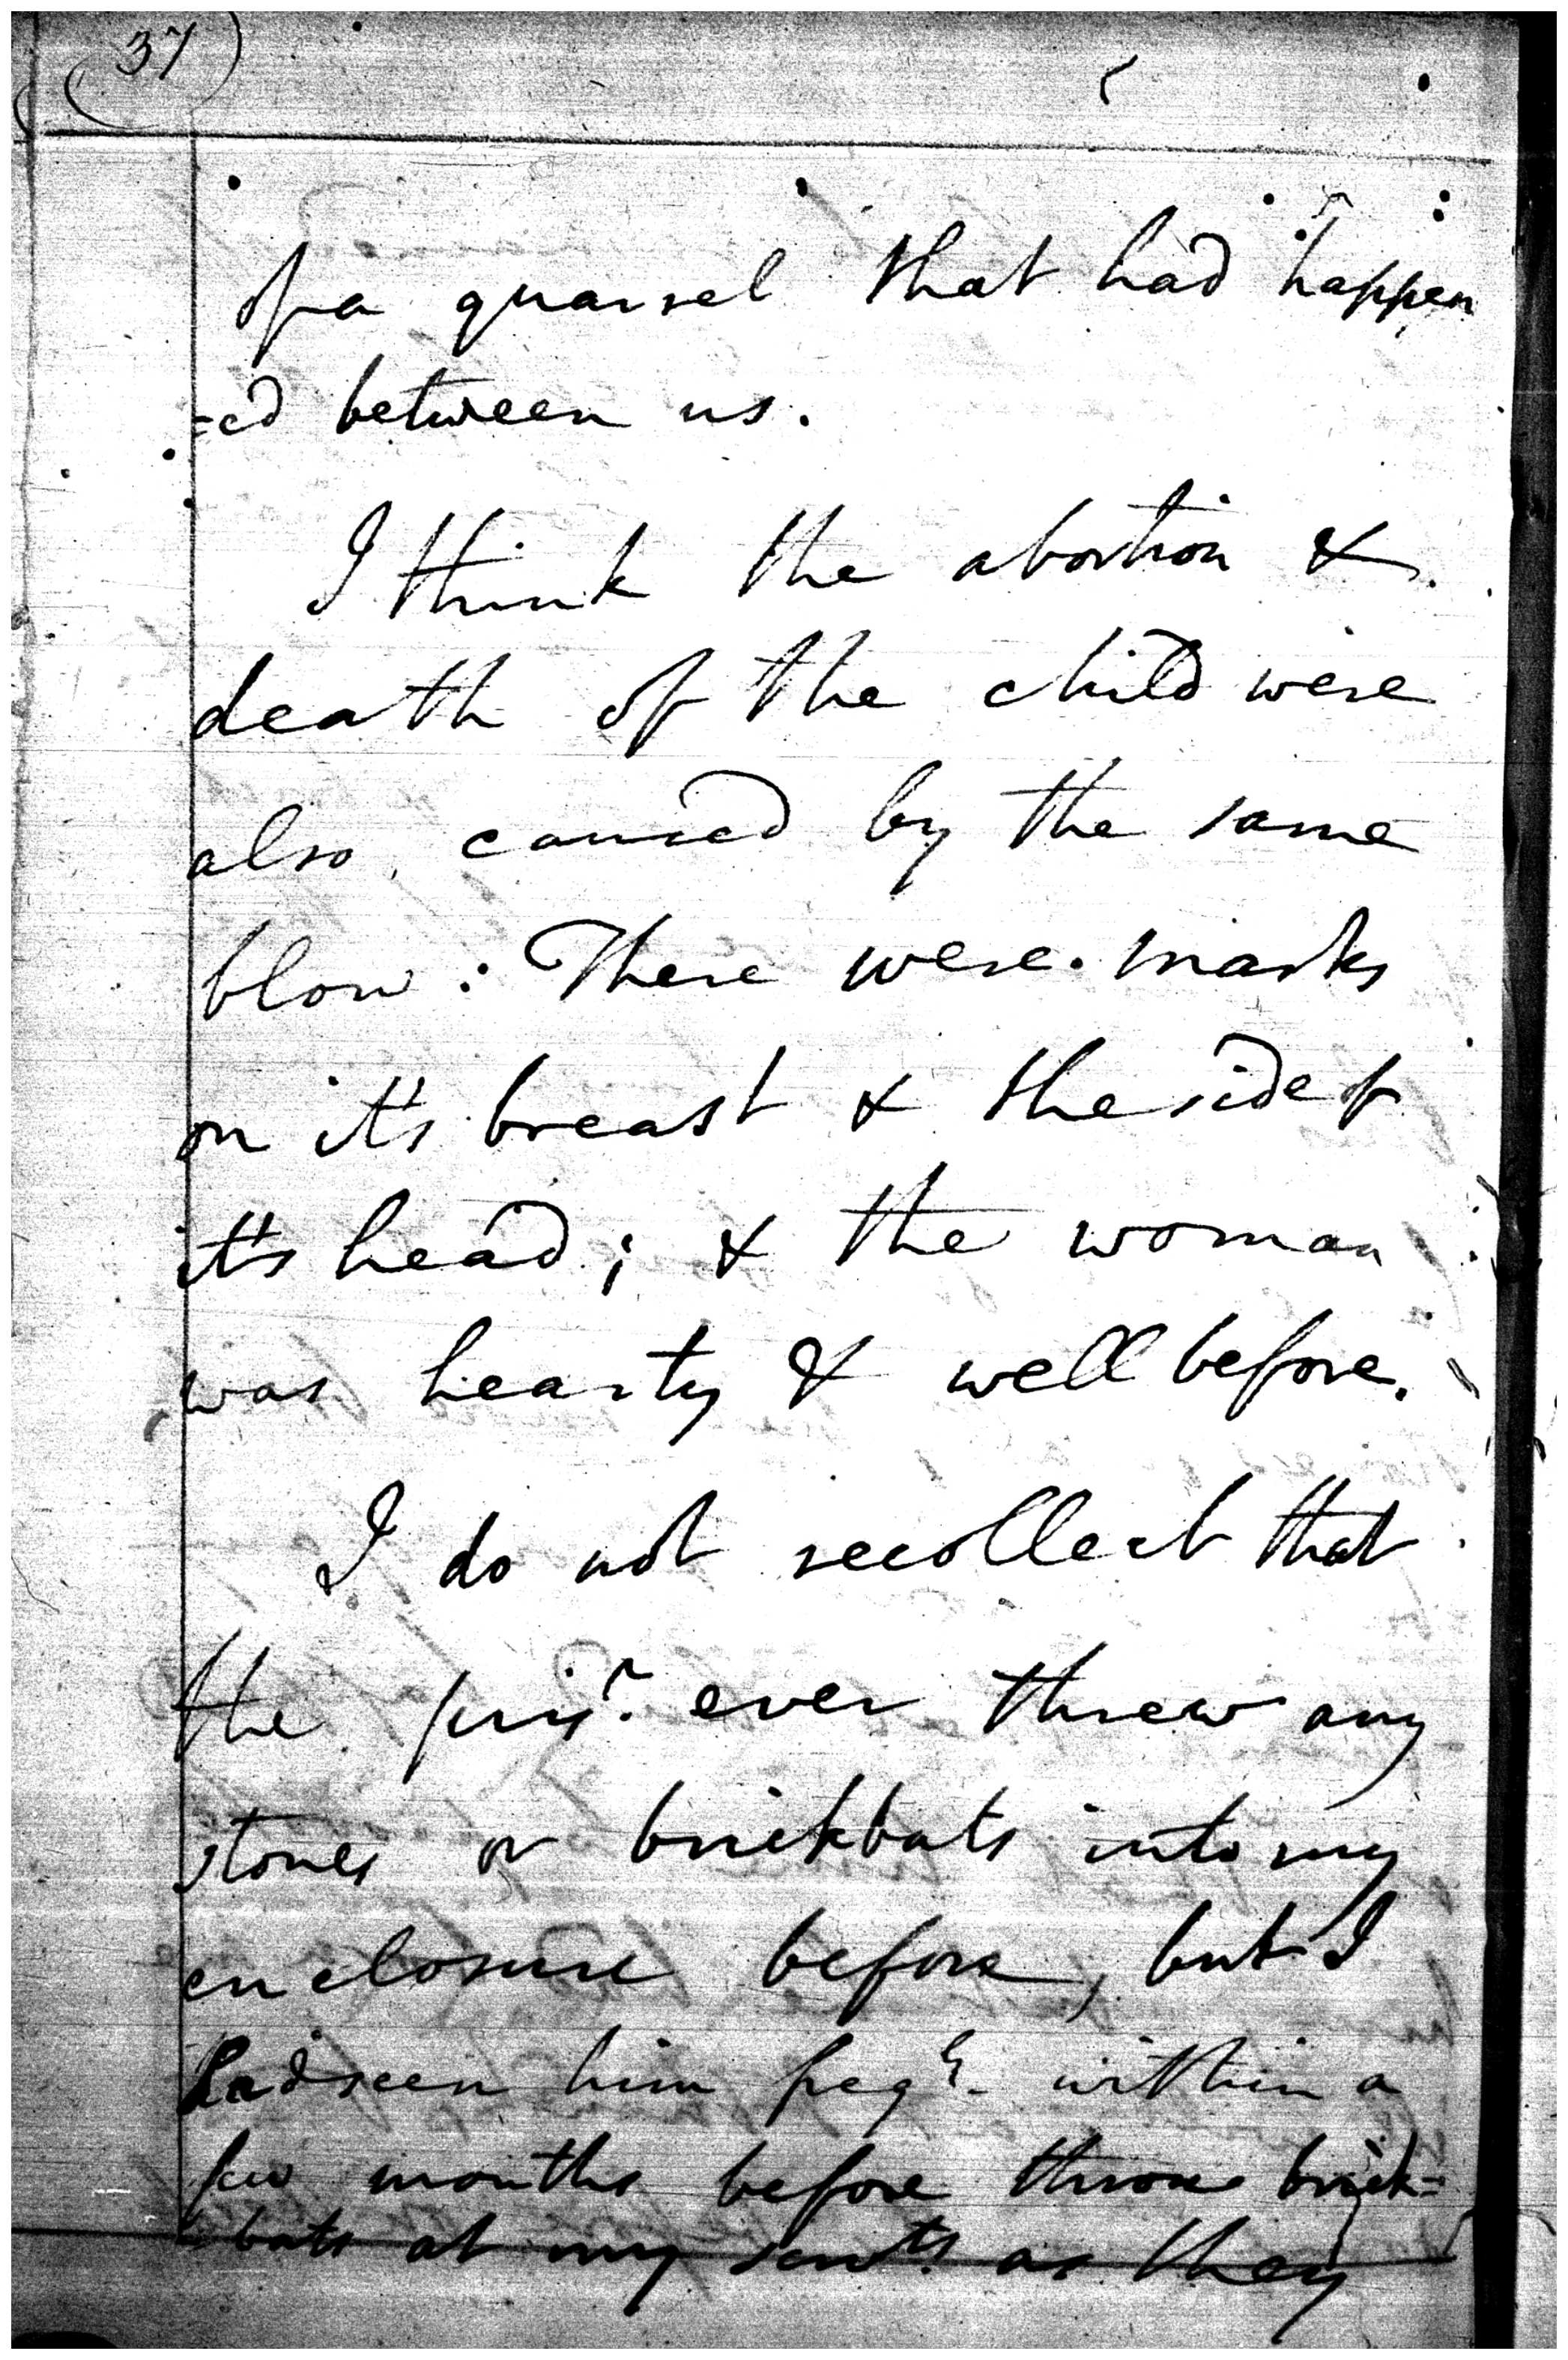 (37)
of a quarrel that had happen
=ed between us.
I think the abortion &
death of the child were
also caused by the same
blow: There were marks
on it's breast & the side of
it's head; & the woman
was hearty & well before.
I do not recollect that
the prisr. ever threw any
stones or brickbats into my
enclosure before, but I
had seen him freqy. within a
few months before throw brick=
=bats at my servts. as they